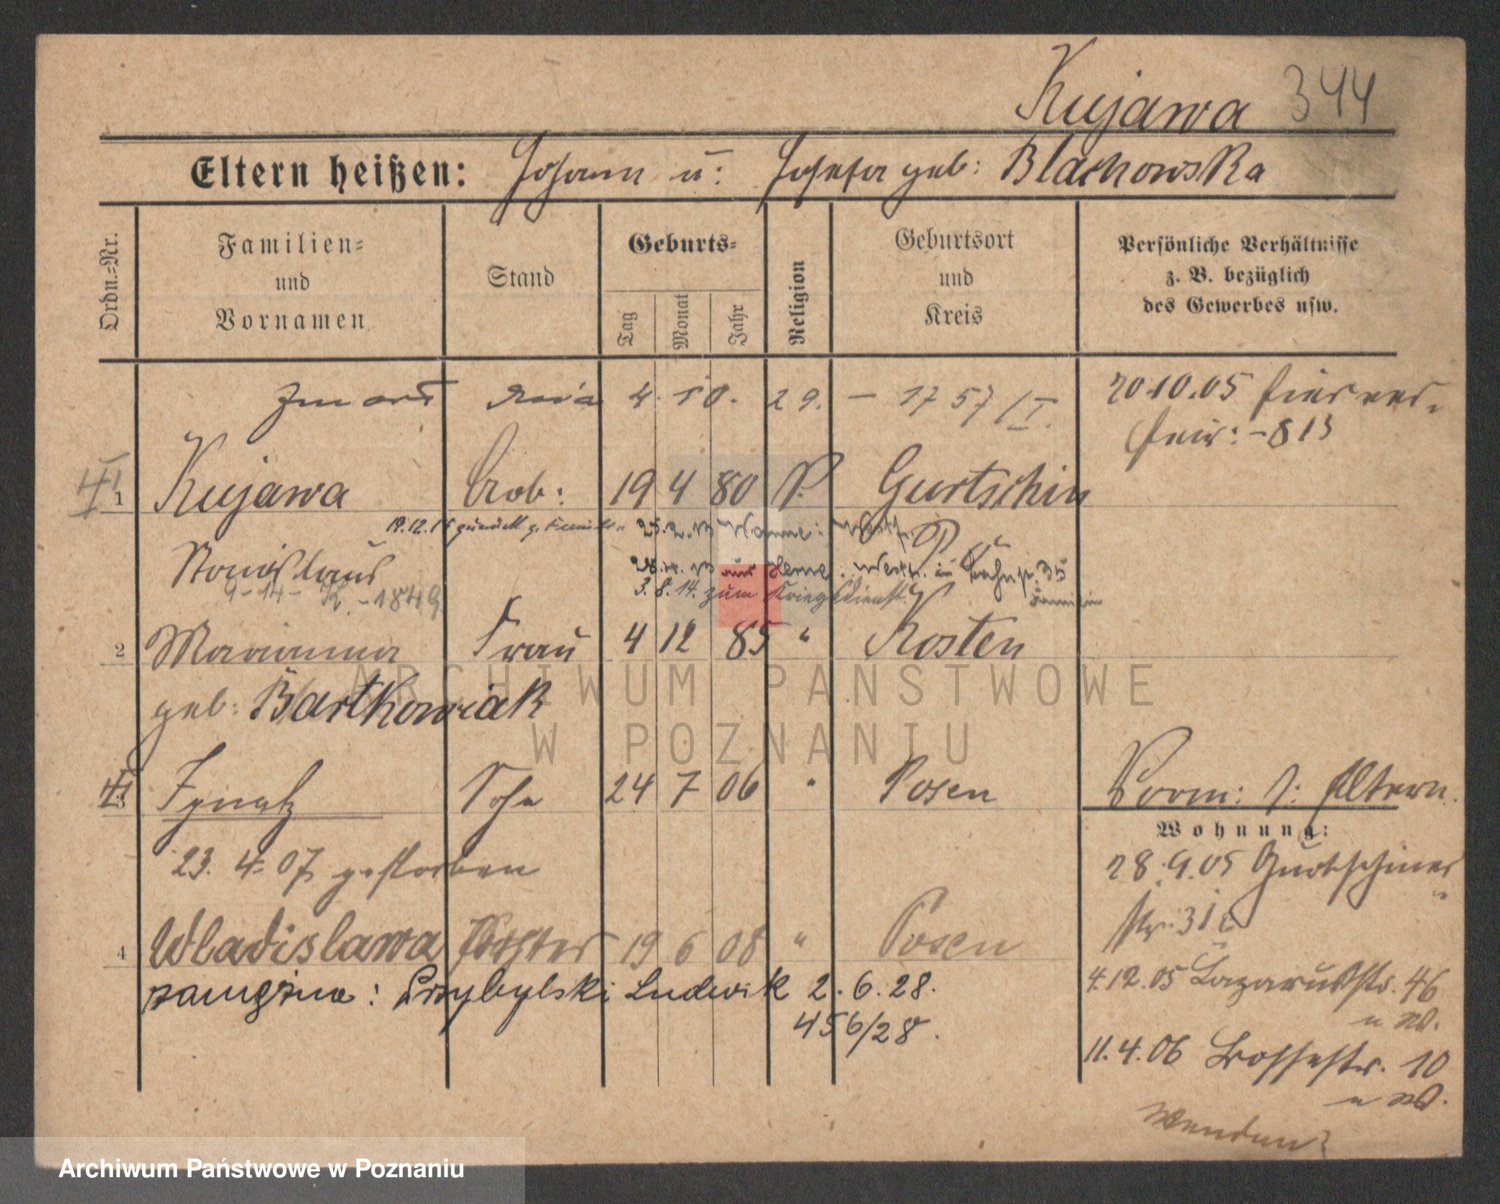 Kujawa 344
Eltern heißen: Johann u: Josefa geb: Blachowska
Ordn.=Nr.
Familien= und Vornamen
Stand
Geburts=
Tag
Monat
Jahr
Religion
Geburtsort und Kreis
Persönliche Verhältnisse z. B. bezüglich des Gewerbes usw.
zmarł dnia 4. 10. 29. – 1757/I.
20.10.05
– 813
1 Kujawa Arb: 19 4 80 P. Gurtschin
19.12.18 zurück
Stanislaus
3.8.14. zum Kriegsdienst
– 1849
2 Marianna Frau 4 12 85 " Kosten
geb: Bartkowiak
3 Ignatz Sohn 24 7 06 " Posen
23. 4. 07 gestorben
Vorm: s: Eltern.
Wohnung:
28.9.05 Gurtschiner
str. 31
4 Wladislawa Tochter 19 6 08 " Posen
zamężna: Przybylski Ludwik 2.6.28.
456/28.
4.12.05 Lazarusstr. 46
11.4.06 Rossestr. 10
Wenden!
ARCHIWUM PAŃSTWOWE
W POZNANIU
Archiwum Państwowe w Poznaniu